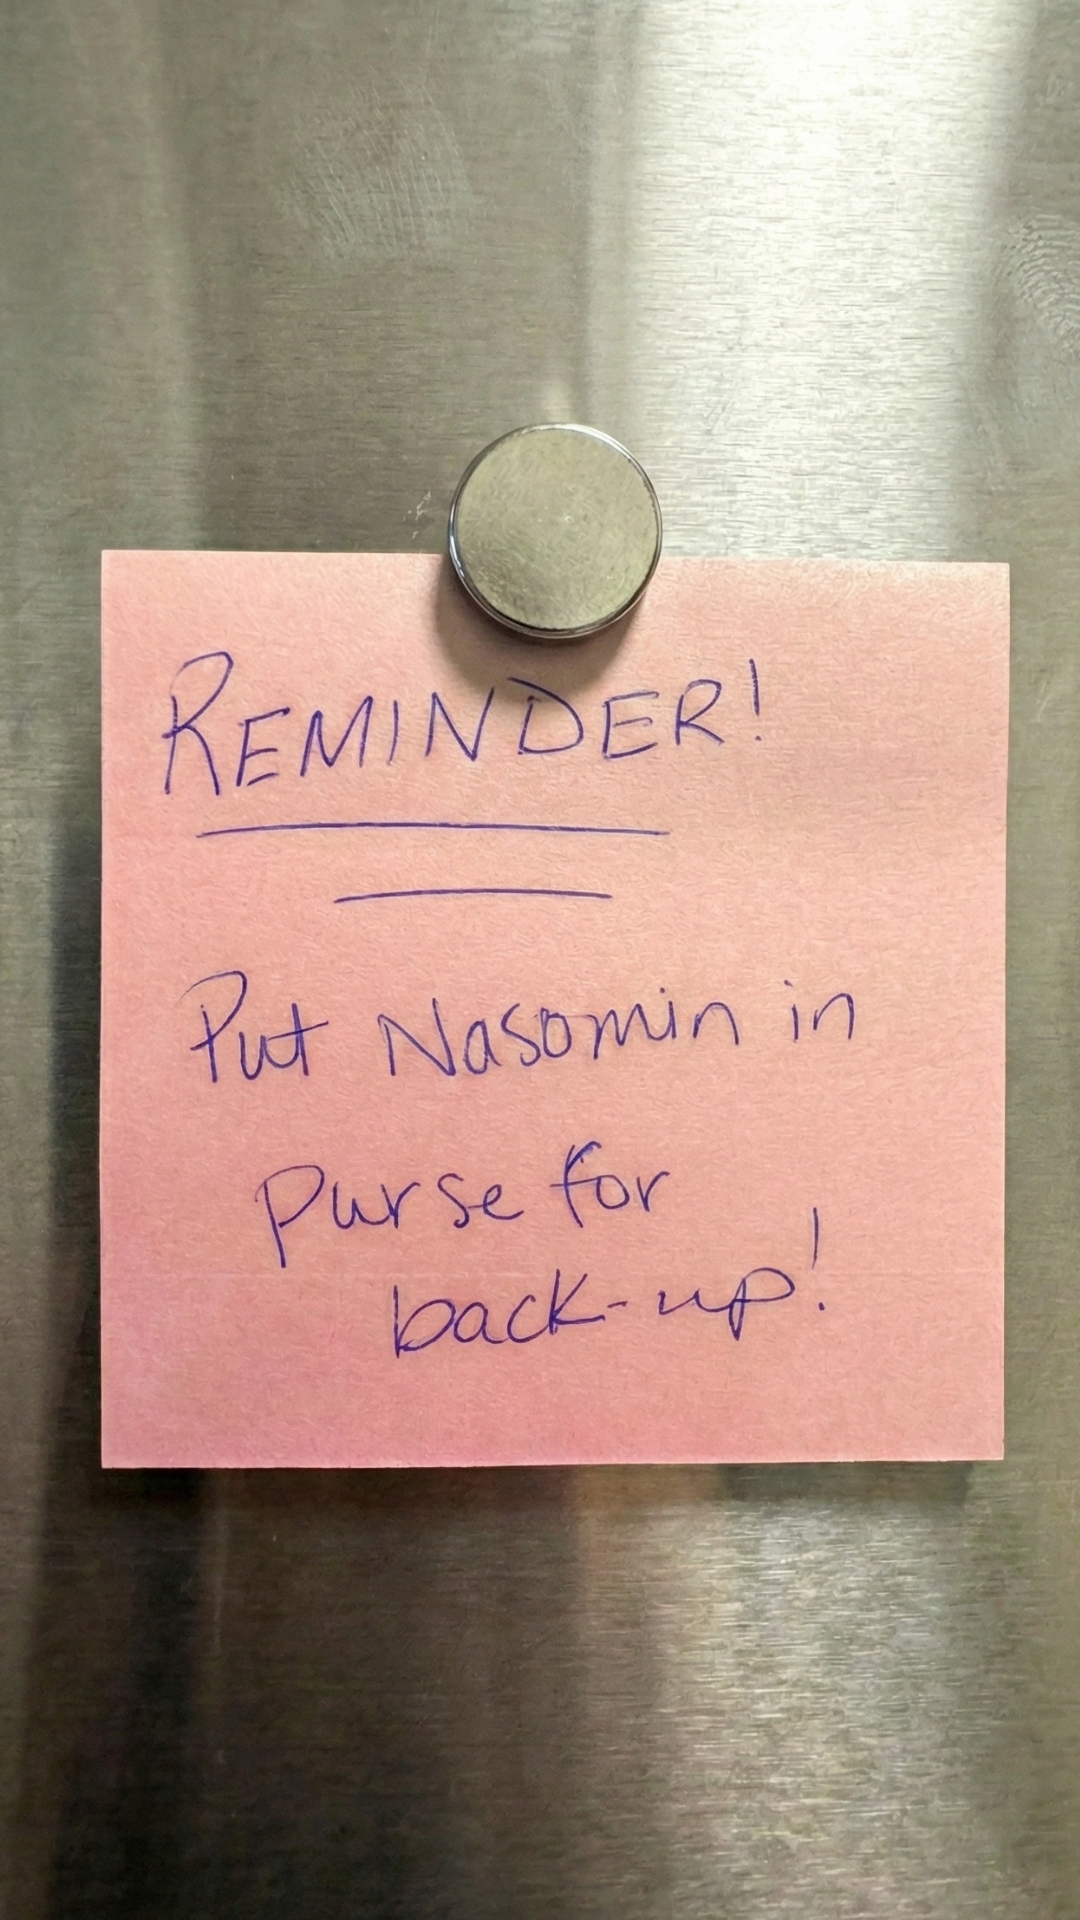 REMINDER!
Put Nasomin in
purse for
back-up!